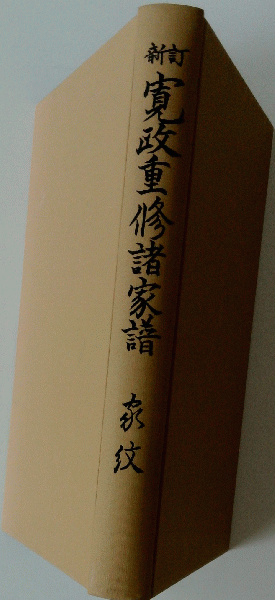 新訂
寛政重修諸家譜
家紋